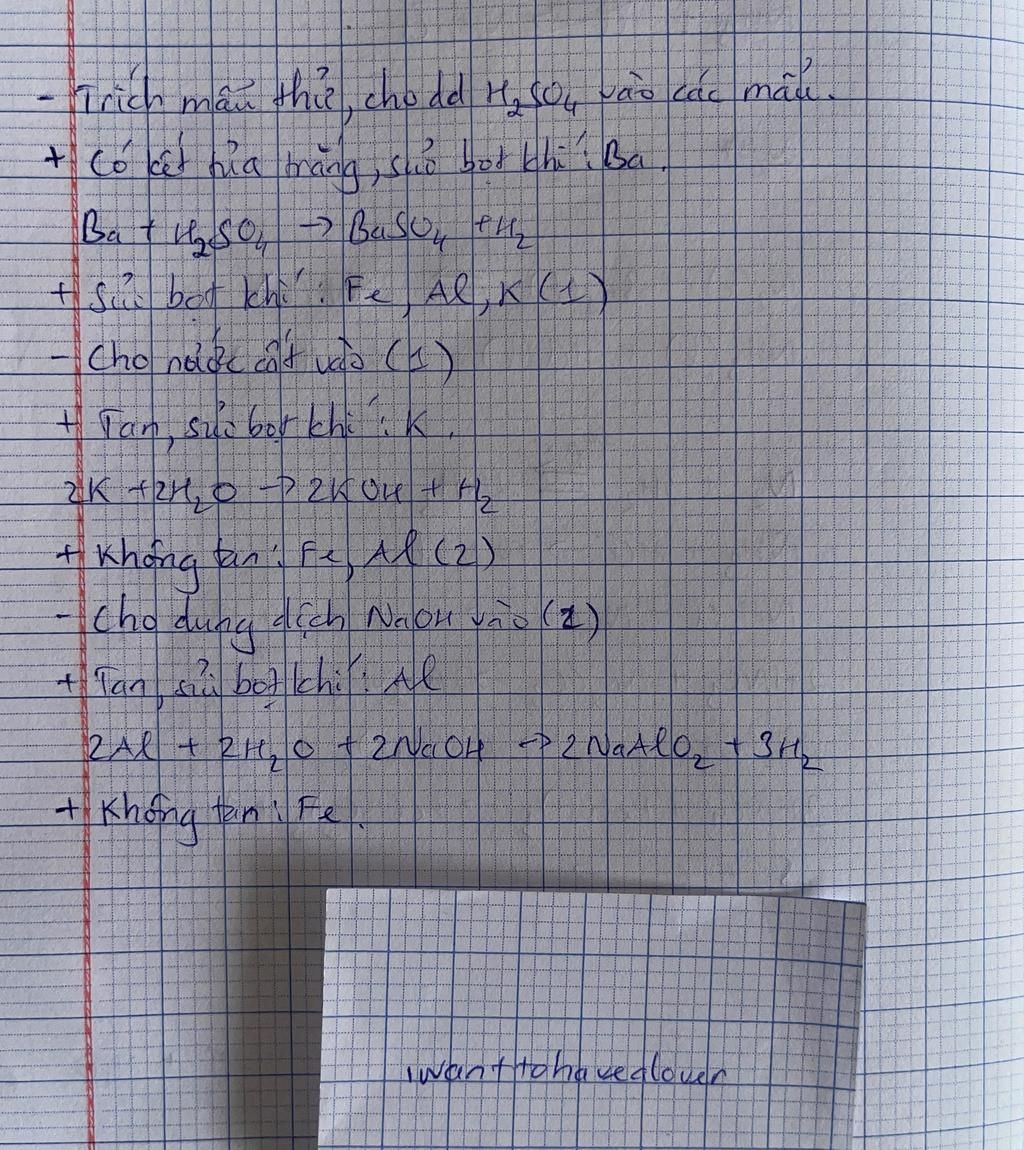 - Trích mẫu thử, cho dd H₂SO₄ vào các mẫu.
+ Có kết tủa trắng, sủi bọt khí: Ba.
Ba + H₂SO₄ → BaSO₄ + H₂
+ Sủi bọt khí: Fe, Al, K (1)
- Cho nước cất vào (1)
+ Tan, sủi bọt khí: K.
2K + 2H₂O → 2KOH + H₂
+ Không tan: Fe, Al (2)
- Cho dung dịch NaOH vào (2)
+ Tan, sủi bọt khí: Al
2Al + 2H₂O + 2NaOH → 2NaAlO₂ + 3H₂
+ Không tan: Fe.
iwanttohavealover